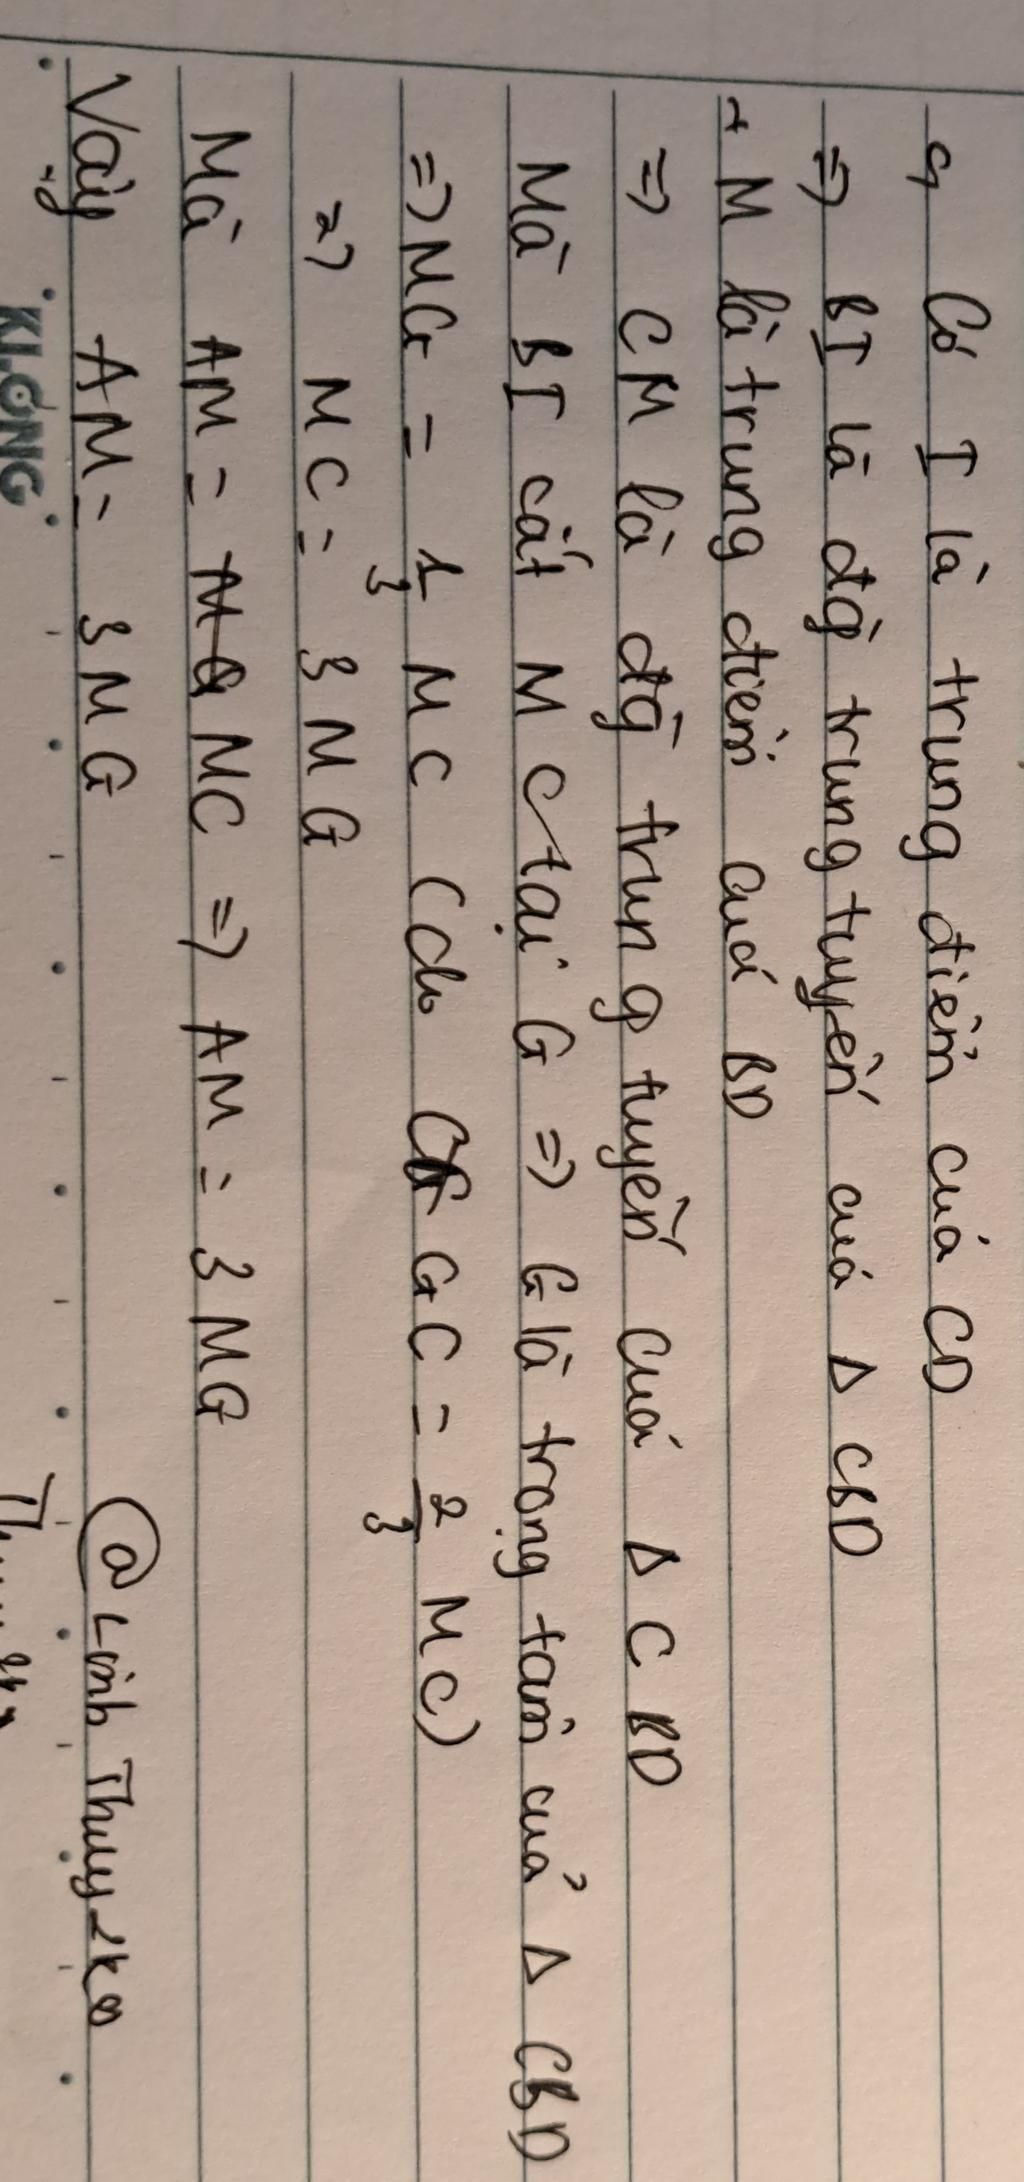 c, Có I là trung điểm của CD
=> BI là đg trung tuyến của Δ CBD
+ M là trung điểm của BD
=> CM là đg trung tuyến của Δ CBD
Mà BI cắt MC tại G => G là trọng tâm của Δ CBD
=> MG = 1/3 MC (do GC = 2/3 MC)
=> MC = 3MG
Mà AM = MC => AM = 3MG
Vậy AM = 3MG
@Linh Thuy2k8
KLONG